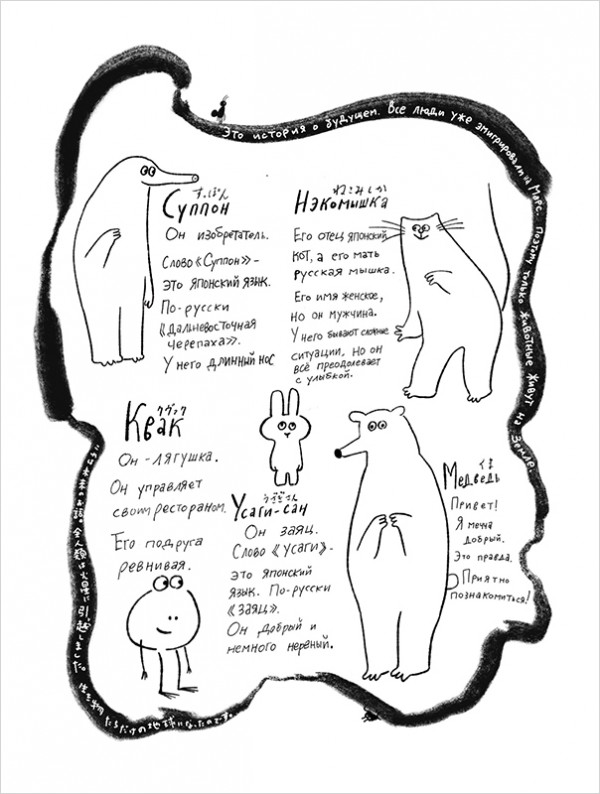 Это история о будущем. Все люди уже эмигрировали на Марс. Поэтому только животные живут на Земле.
すっぽん
Суппон
Он изобретатель.
Слово «Суппон» -
это японский язык.
По-русски
«Дальневосточная
черепаха».
У него длинный нос
ねこみしか
Нэкомышка
Его отец японский
кот, а его мать
русская мышка.
Его имя женское,
но он мужчина.
У него бывают сложные
ситуации, но он
всё преодолевает
с улыбкой.
クヴァク
Квак
Он - лягушка.
Он управляет
своим рестораном.
Его подруга
ревнивая.
Усаги-сан
Он заяц.
Слово «Усаги» -
это японский
язык. По-русски
«заяц».
Он добрый и
немного нервный.
くま
Медведь
Привет!
Я
добрый.
Это правда.
Приятно
познакомиться!
未来のお話。全人類は火星に引越しました。生き物たちだけの地球になったのです。